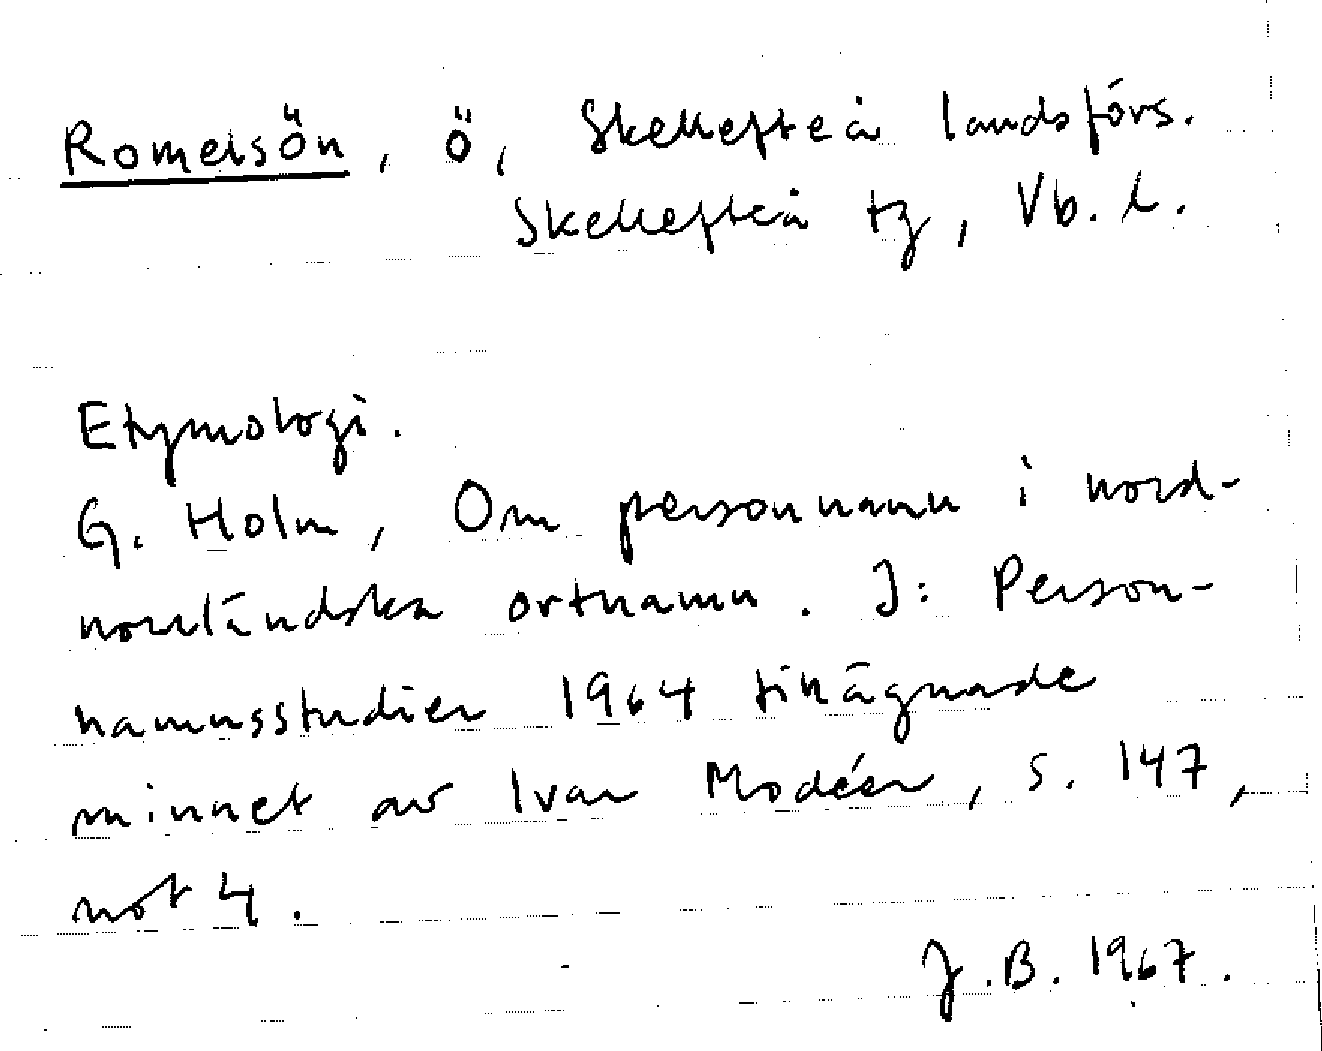 Romelsön, ö, Skellefteå landsförs.
Skellefteå tg, Vb. l.
Etymologi.
G. Holm, Om personnamn i nord-
norrländska ortnamn. I: Person-
namnsstudier 1964 tillägnade
minnet av Ivar Modéer, s. 147,
not 4.
J.B. 1967.